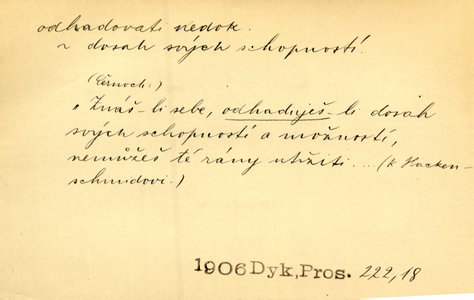 odhadovati nedok.
~ dosah svých schopností.
(Černoch:)
"Znáš-li sebe, odhaduješ-li dosah
svých schopností a možností,
nemůžeš té rány utižiti ... (k Hacken-
schmidovi.)
1906 Dyk, Pros. 222, 18